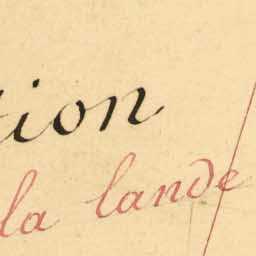 tion
la lande